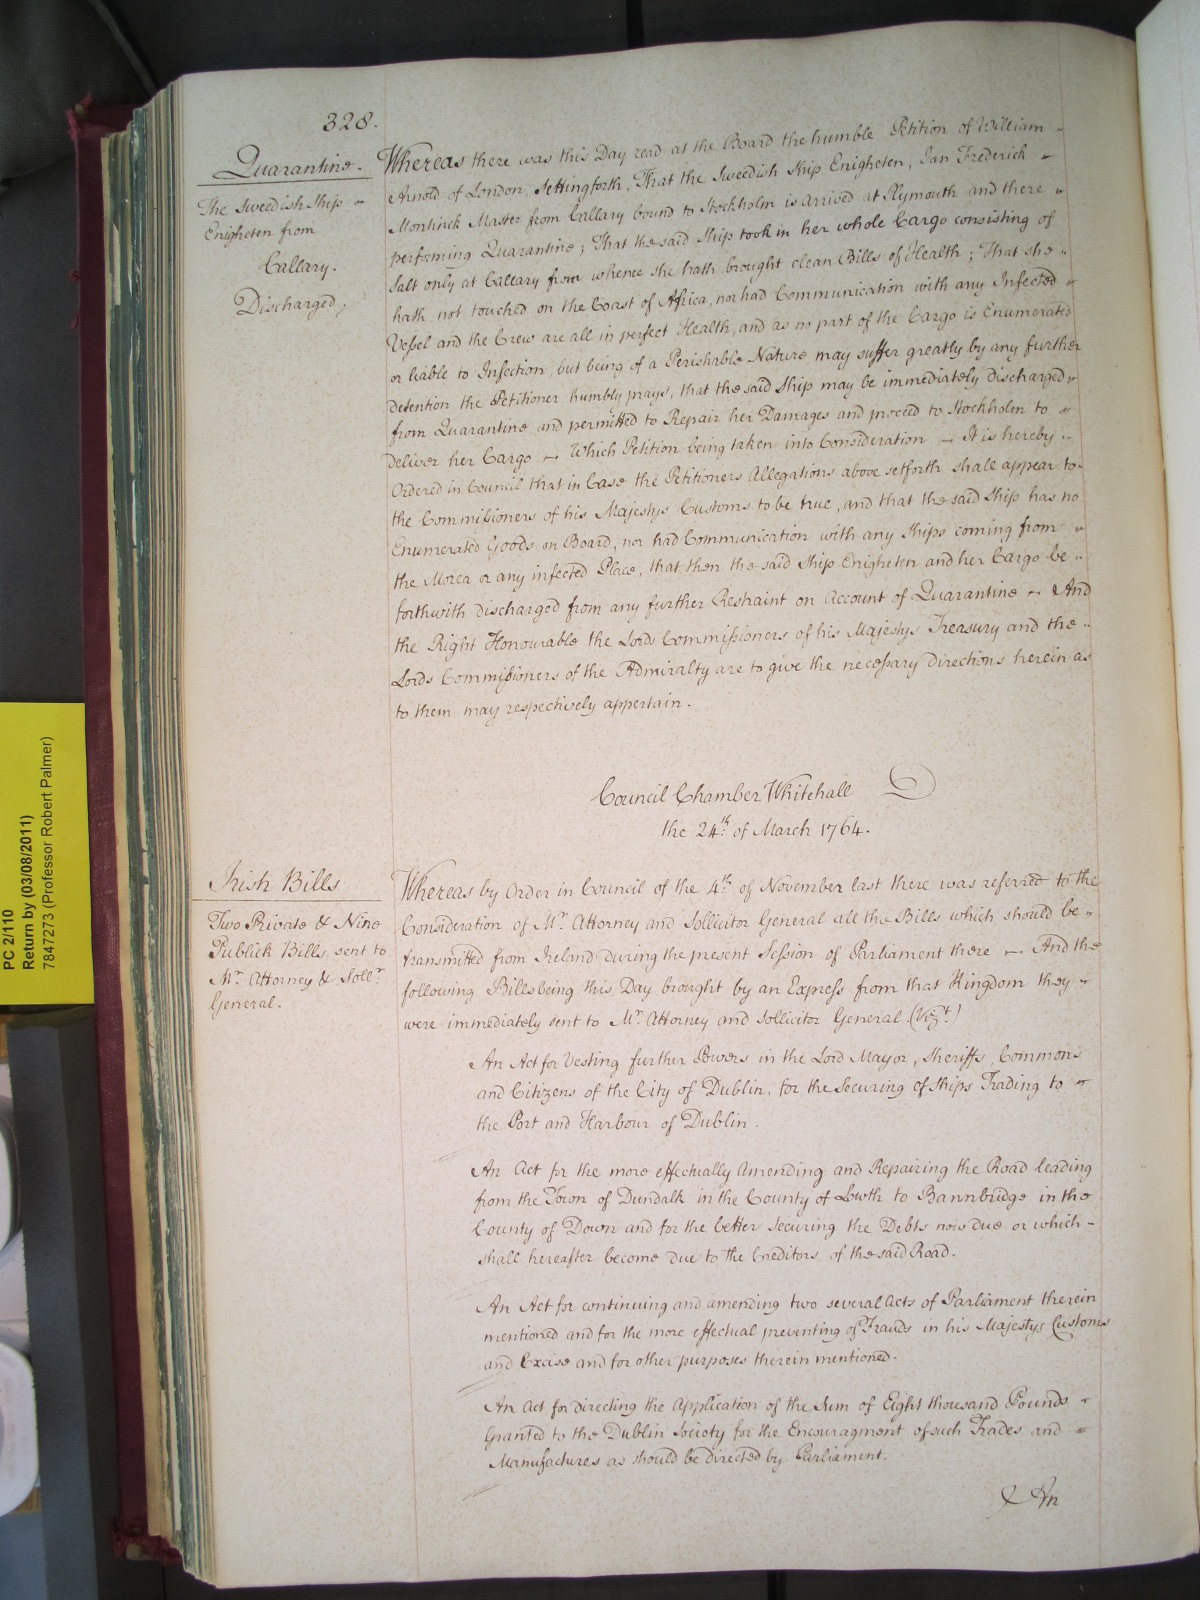 328.
Quarantine.
The Swedish Ship
Enigheten from
Callary.
Discharged.
Whereas there was this Day read at the Board the humble Petition of William
Arnold of London, settingforth, That the Swedish Ship Enigheten, Jan Frederick
Montinck Master from Callary bound to Stockholm is arrived at Plymouth and there
performing Quarantine; That the said Ship took in her whole Cargo consisting of
Salt only at Callary from whence she hath brought clean Bills of Health; That she
hath not touched on the Coast of Africa, nor had Communication with any Infected
Vessel and the Crew are all in perfect Health, and as no part of the Cargo is Enumerated
or liable to Infection, but being of a Perishable Nature may suffer greatly by any further
detention the Petitioner humbly prays, that the said Ship may be immediately discharged
from Quarantine and permitted to Repair her Damages and proceed to Stockholm to
deliver her Cargo — Which Petition being taken into Consideration — It is hereby
Ordered in Council that in Case the Petitioners Allegations above setforth shall appear to
the Commissioners of his Majestys Customs to be true, and that the said Ship has no
Enumerated Goods on Board, nor had Communication with any Ships coming from
the Morea or any infected Place, that then the said Ship Enigheten and her Cargo be
forthwith discharged from any further Restraint on Account of Quarantine — And
the Right Honourable the Lords Commissioners of his Majestys Treasury and the
Lords Commissioners of the Admiralty are to give the necessary directions herein as
to them may respectively appertain.
Council Chamber Whitehall
the 24th. of March 1764.
Irish Bills
Two Private & Nine
Publick Bills, sent to
Mr. Attorney & Sollr.
General.
Whereas by Order in Council of the 4th. of November last there was referred to the
Consideration of Mr. Attorney and Sollicitor General all the Bills which should be
transmitted from Ireland during the present Session of Parliament there — And the
following Bills being this Day brought by an Express from that Kingdom they
were immediately sent to Mr. Attorney and Sollicitor General (Vizt.)
An Act for Vesting further Powers in the Lord Mayor, Sheriffs, Commons
and Citizens of the City of Dublin, for the Securing of Ships Trading to
the Port and Harbour of Dublin.
An Act for the more effectually Amending and Repairing the Road leading
from the Town of Dundalk in the County of Lowth to Bannbridge in the
County of Down and for the better Securing the Debts now due or which
shall hereafter become due to the Creditors of the said Road.
An Act for continuing and amending two several Acts of Parliament therein
mentioned and for the more effectual preventing of Frauds in his Majestys Customs
and Excise and for other purposes therein mentioned.
An Act for directing the Application of the Sum of Eight thousand Pounds
Granted to the Dublin Society for the Encouragment of such Trades and
Manufactures as should be directed by Parliament.
An
PC 2/110
Return by (03/08/2011)
7847273 (Professor Robert Palmer)